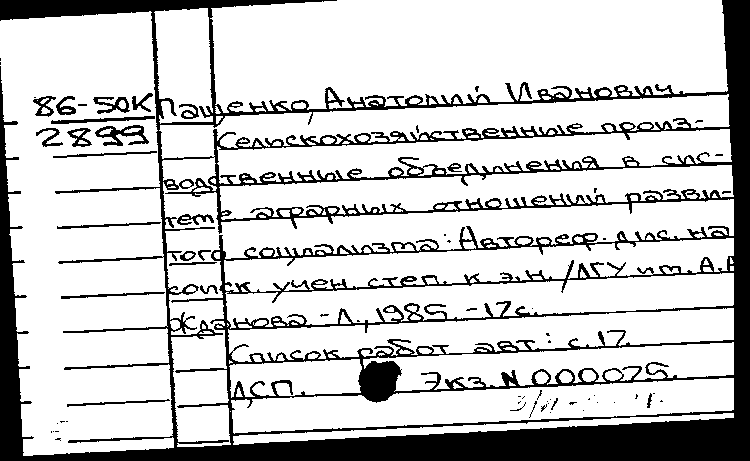 86-50К
2899
Пащенко, Анатолий Иванович.
Сельскохозяйственные произ-
водственные объединения в сис-
теме аграрных отношений разви-
того социализма: Автореф. дис. на
соиск. учен. степ. к. э. н. /ЛГУ им. А.А
Жданова. - Л., 1985. - 17с.
Список работ авт.: с. 17.
ДСП. Экз. N 000075.